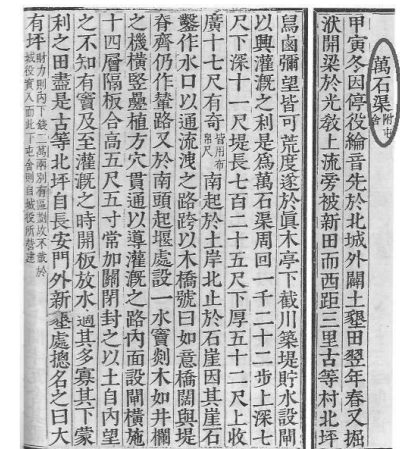 萬石渠附屯舍
甲寅冬因停役綸音先於北城外闢土墾田翌年春又掘
洑開梁於光敎上流旁被新田而西距三里古等村北坪
舃鹵彌望皆可荒度遂於眞木亭下截川築堤貯水設閘
以興灌漑之利是爲萬石渠周回一千二十二步上深七
尺下深十一尺堤長七百二十五尺下厚五十二尺上收
廣十七尺有奇皆用布帛尺南起於土岸北止於石崖因其崖石
鑿作水口以通流洩之路跨以木橋號曰如意橋闊與堤
脊齊仍作輦路又於南頭起堰處設一水竇剡木如井欄
之機橫竪疊植方穴貫通以導灌漑之路內面設閘橫施
十四層隔板合高五尺五寸常加關閉封之以土自內望
之不知有竇及至灌漑之時開板放水適其多寡其下蒙
利之田盡是古等北坪自長安門外新墾處摠名之曰大
有坪財力則內下錢二萬兩別有區劃故不載於城役實入而此下屯舍則自城役所營建